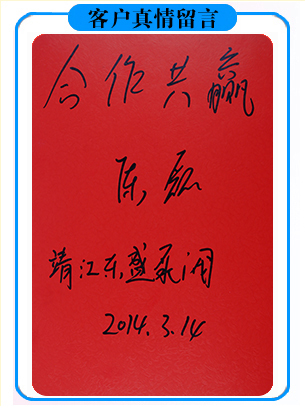 客户真情留言
合作共赢
陈磊
靖江东盛泵阀
2014.3.14